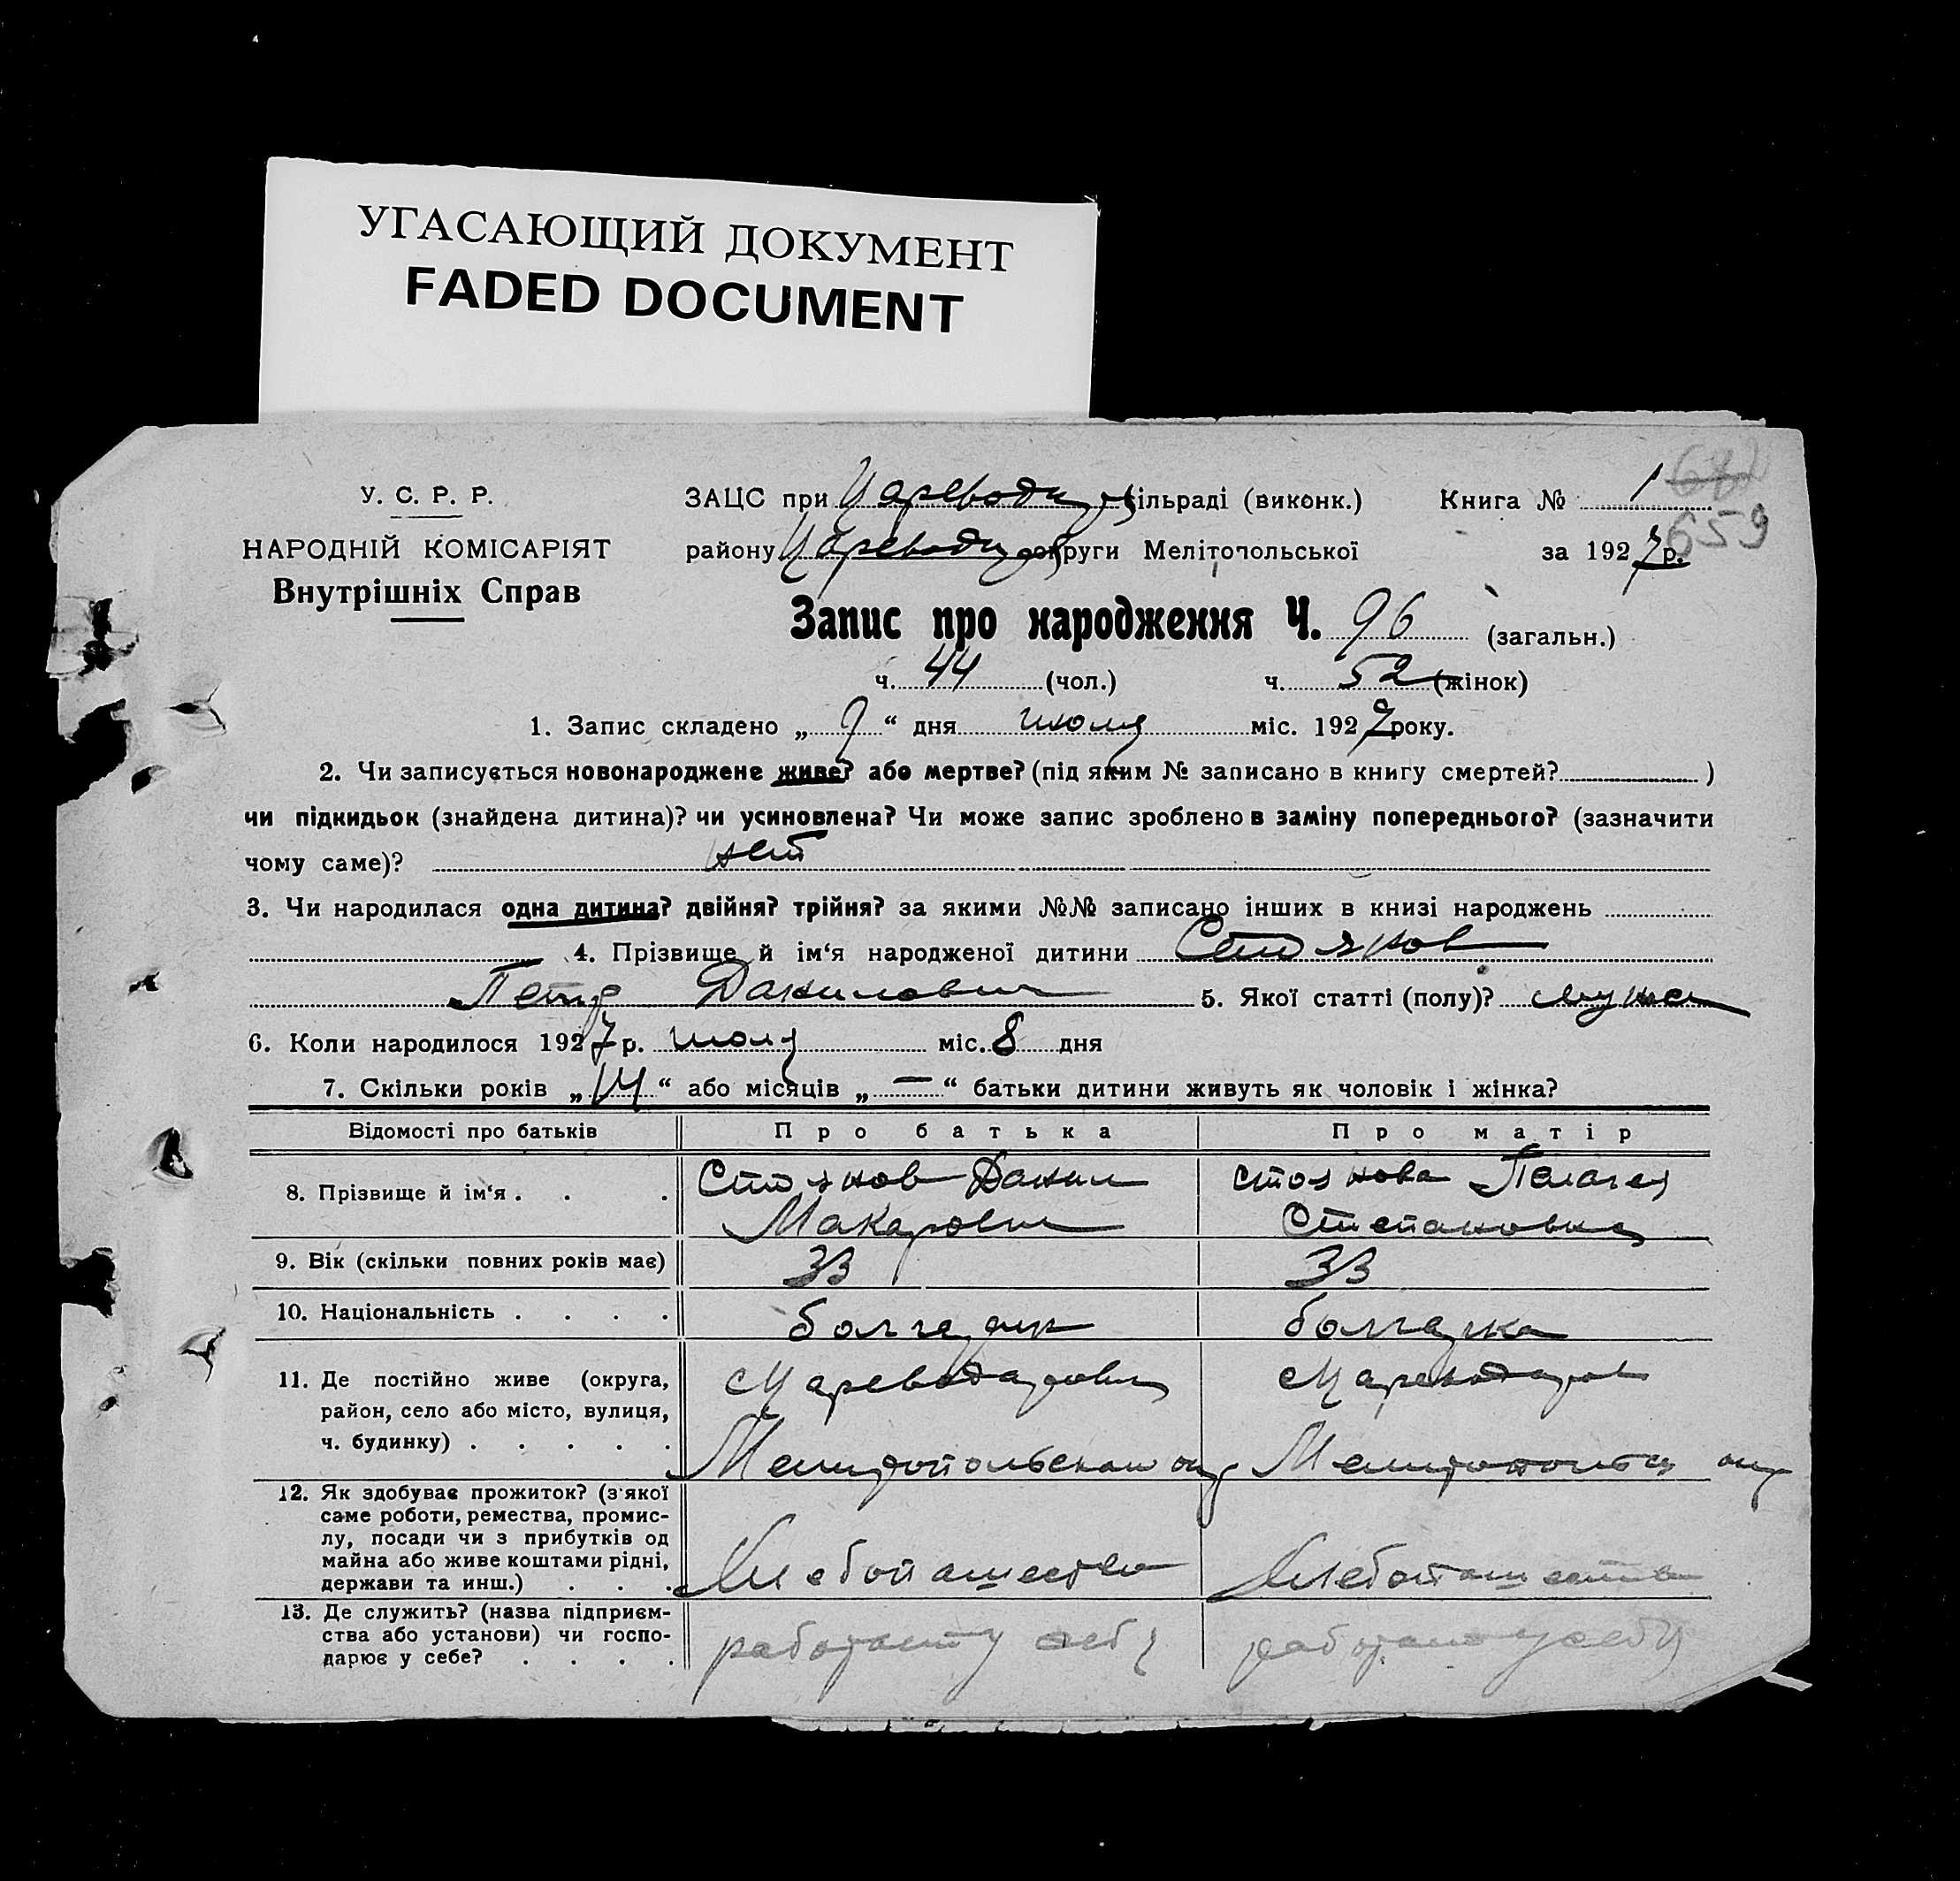 УГАСАЮЩИЙ ДОКУМЕНТ
FADED DOCUMENT
У. С. Р. Р.
НАРОДНІЙ КОМІСАРІЯТ
Внутрішніх Справ
ЗАЦС при Цареводар сільраді (виконк.) Книга № 1
району Цареводар округи Мелітопольської за 1927 р.
659
Запис про народження Ч. 96 (загальн.)
ч. 44 (чол.) ч. 52 (жінок)
1. Запис складено „ 9 “ дня июля міс. 1927 року.
2. Чи записується новонароджене живе? або мертве? (під яким № записано в книгу смертей? )
чи підкидьок (знайдена дитина)? чи усиновлена? Чи може запис зроблено в заміну попереднього? (зазначити
чому саме)? нет
3. Чи народилася одна дитина? двійня? трійня? за якими №№ записано інших в книзі народжень
4. Прізвище й ім‘я народженої дитини Стоянов
Петр Данилович 5. Якої статті (полу)? мужск
6. Коли народилося 1927 р. июля міс. 8 дня
7. Скільки років „ 14 “ або місяців „ — “ батьки дитини живуть як чоловік і жінка?
Відомості про батьків Про батька Про матір
8. Прізвище й ім‘я . . . Стоянов Данил Стоянова Пелагея
Макарович Степановна
9. Вік (скільки повних років має) 33 33
10. Національність . . . . болгарин болгарка
11. Де постійно живе (округа, Цареводаровка Цареводаров
район, село або місто, вулиця,
ч. будинку) . . . . . Мелитопольской окр Мелитопольск окр
12. Як здобуває прожиток? (з‘якої
саме роботи, ремества, промис-
лу, посади чи з прибутків од
майна або живе коштами рідні, Хлебопашество Хлебопашество
держави та инш.) . . .
13. Де служить? (назва підприєм-
ства або установи) чи госпо- работает у себя работает у себя
дарює у себе? . . . .